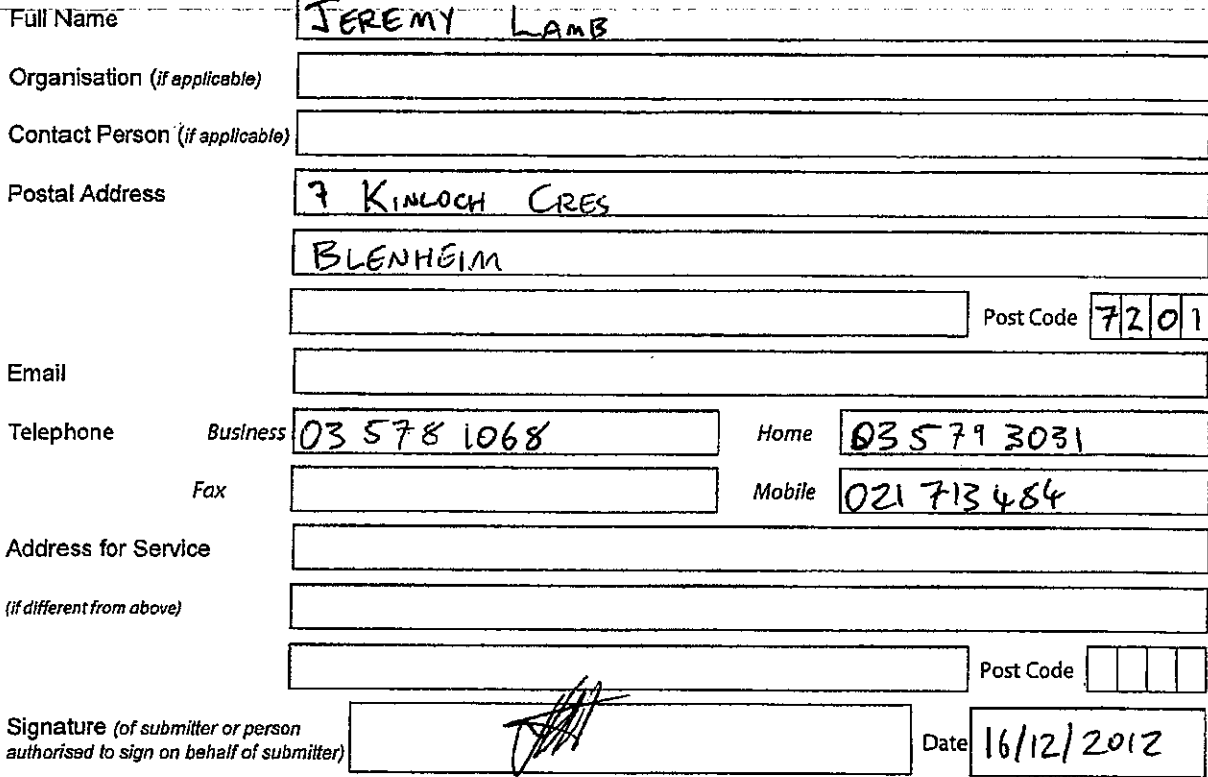 Full Name JEREMY LAMB
Organisation (if applicable)
Contact Person (if applicable)
Postal Address 7 KINLOCH CRES
BLENHEIM
Post Code 7201
Email
Telephone Business 03 578 1068 Home 03 579 3031
Fax Mobile 021 713 484
Address for Service
(if different from above)
Post Code
Signature (of submitter or person
authorised to sign on behalf of submitter) Date 16/12/2012